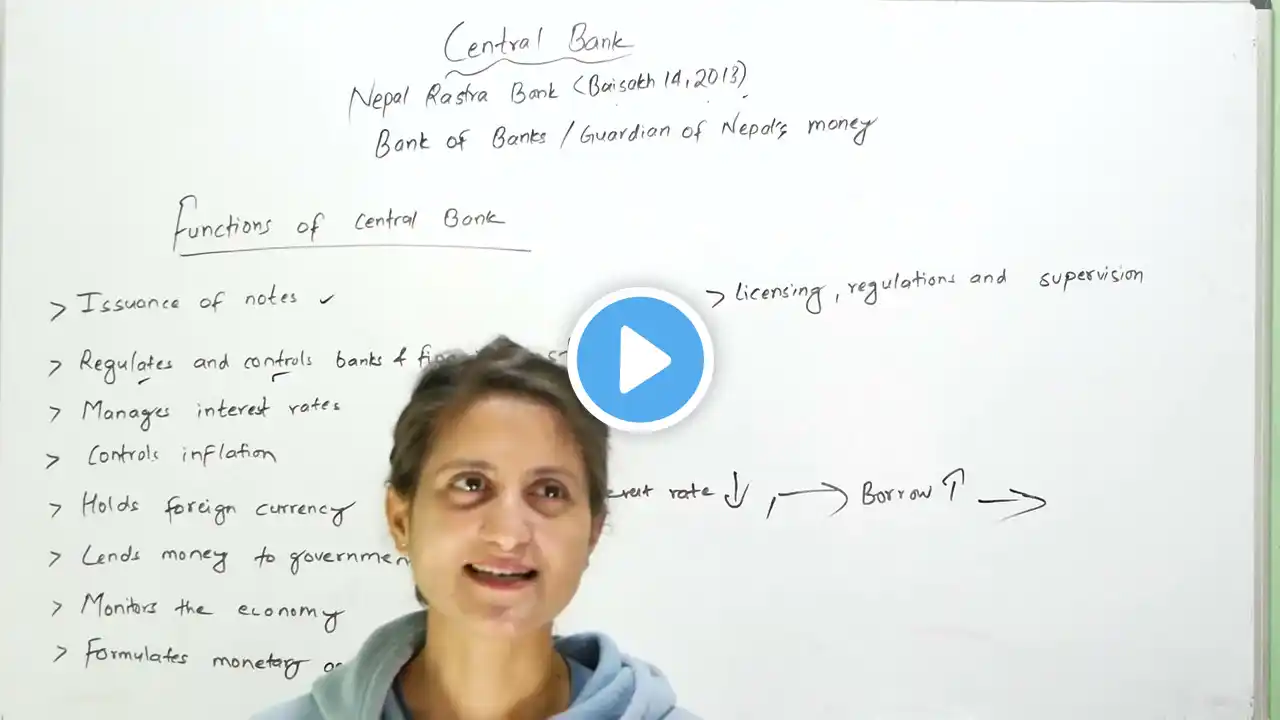 Central Bank
Nepal Rastra Bank (Baisakh 14, 2013)
Bank of Banks / Guardian of Nepal's money
Functions of Central Bank
> Issuance of notes ✓
> Regulates and controls banks &
> Manages interest rates
> Controls inflation
> Holds foreign currency
> Lends money to governmen
> Monitors the economy
> Formulates monetary
> licensing, regulations and supervision
rate ↓, → Borrow ↑ →